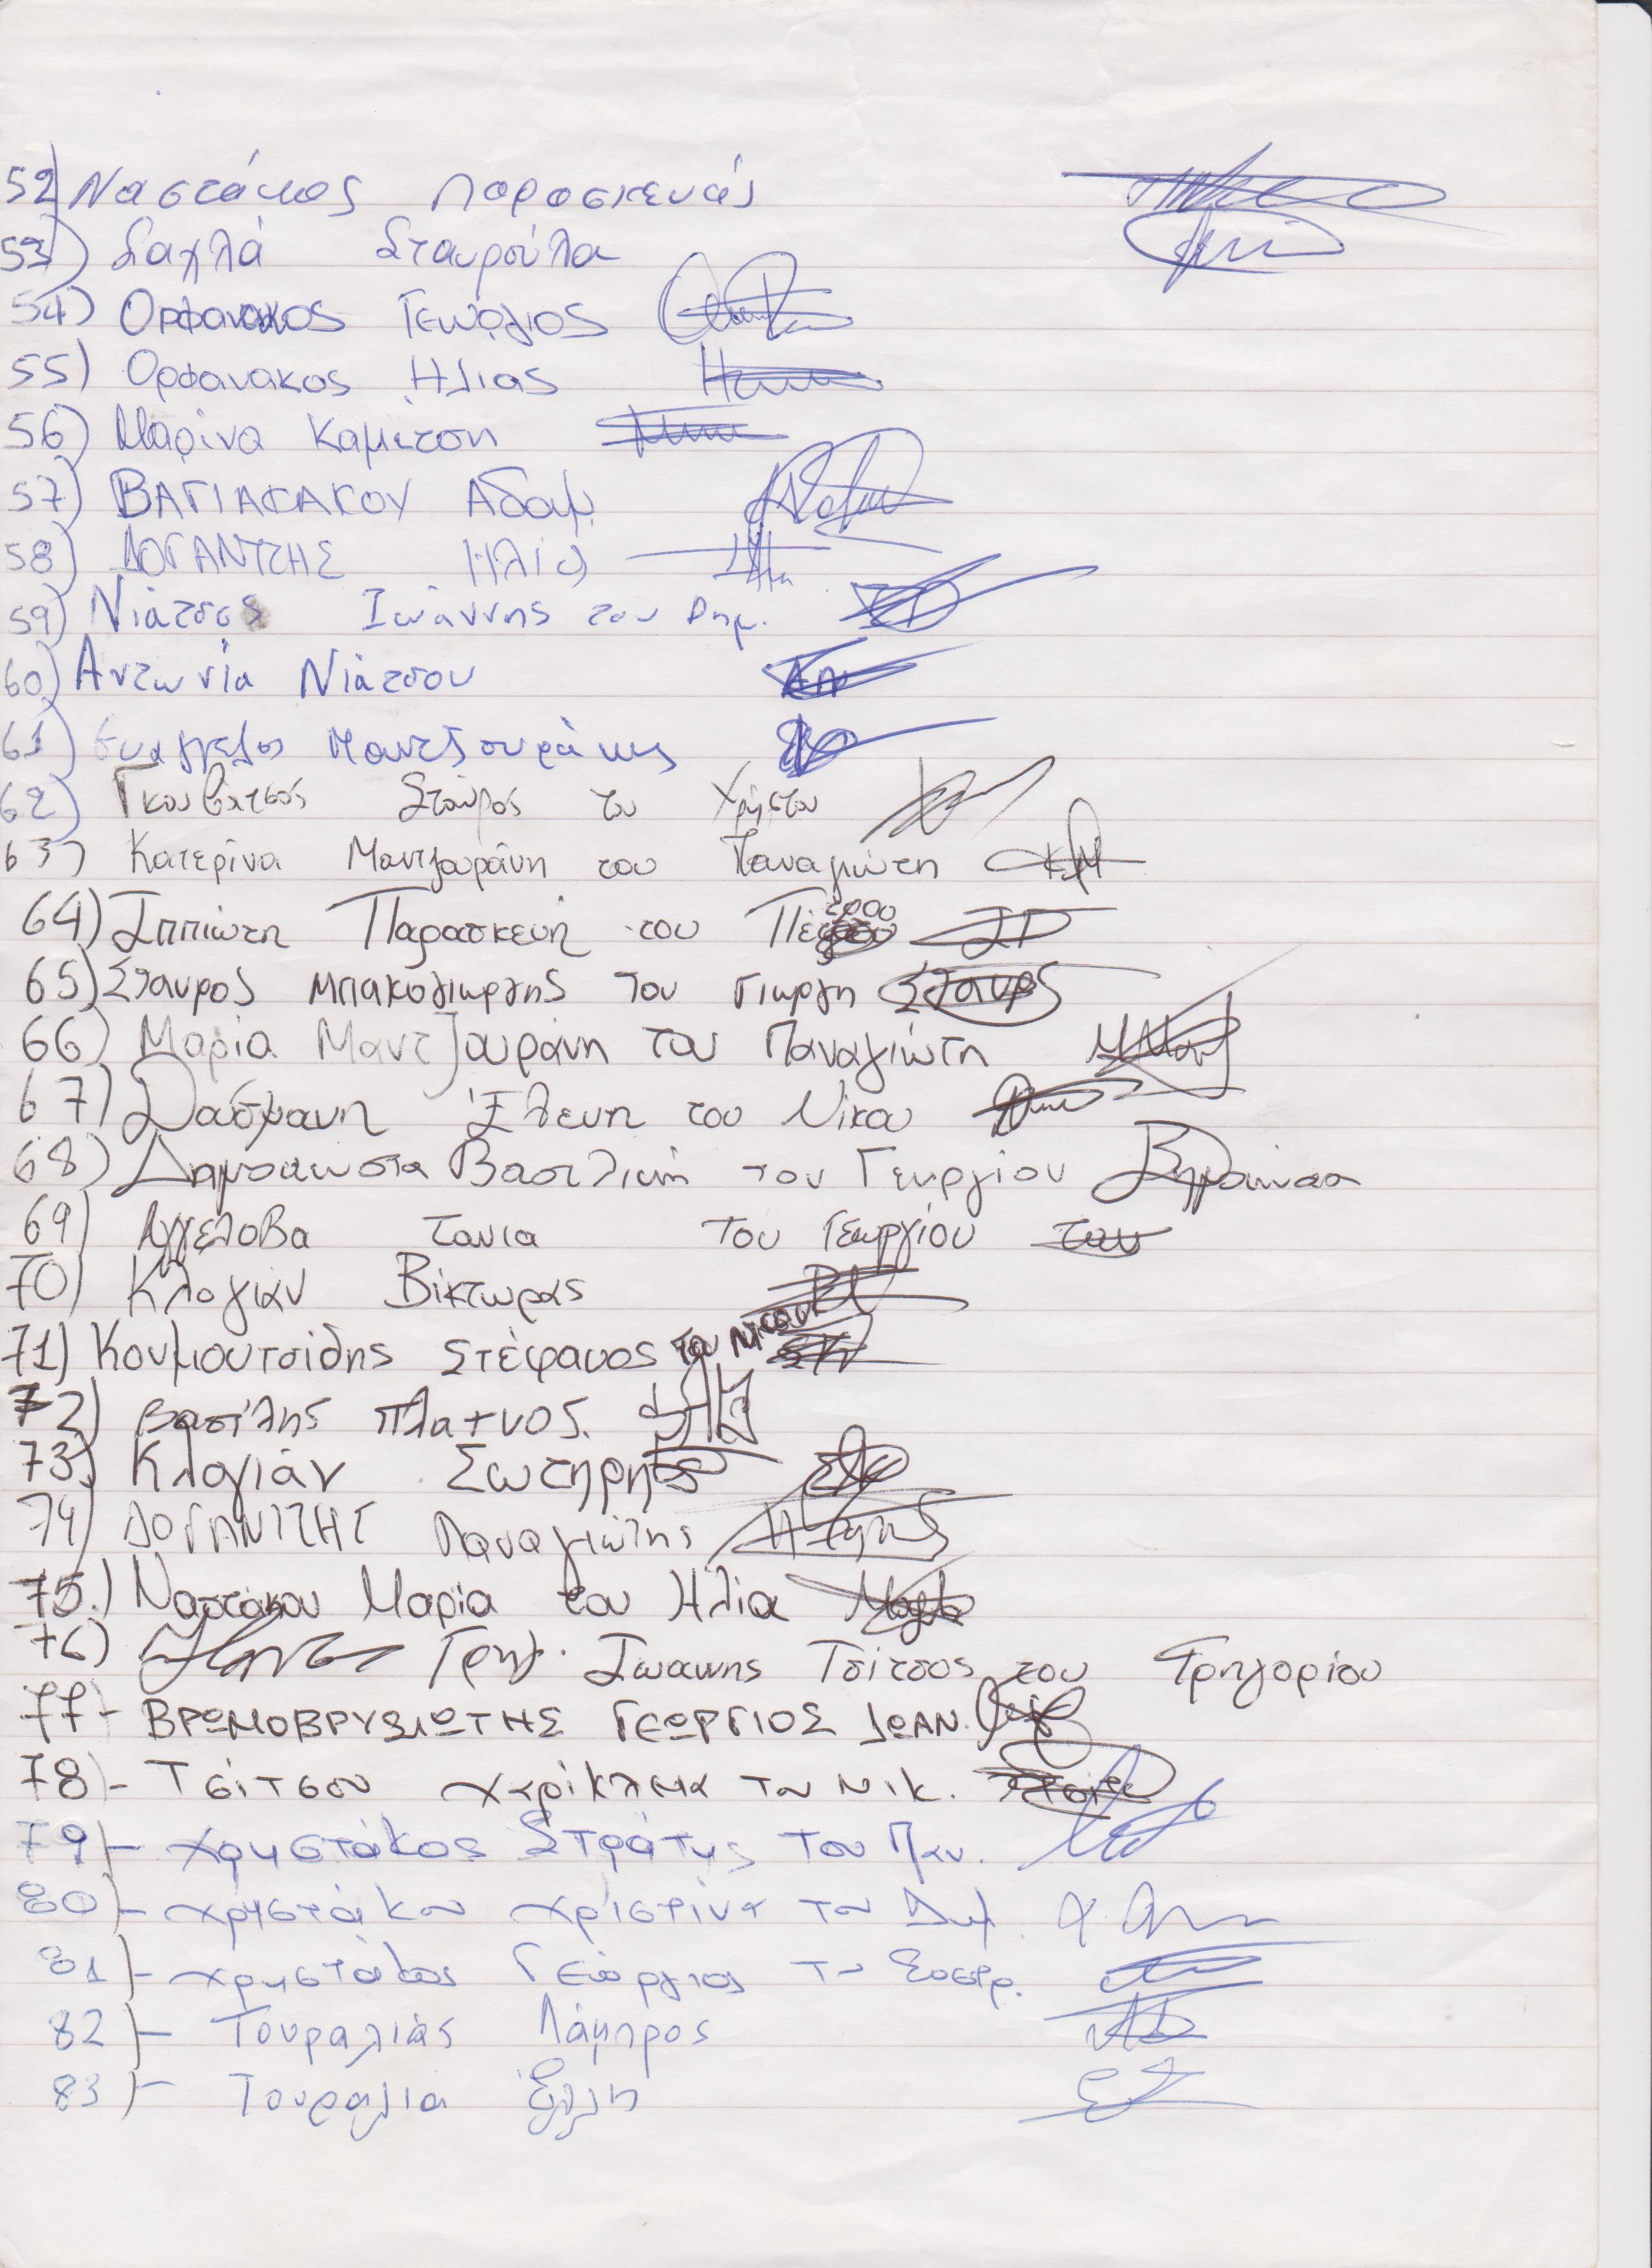 52) Ναστάκος Παρασκευάς
53) Σαχλά Σταυρούλα
54) Ορφανακος Γεώργιος
55) Ορφανακος Ηλιας
56) Μαρίνα Καμίτση
57) ΒΑΓΙΑΚΑΚΟΥ Αδαμ.
58) ΔΟΓΑΝΤΖΗΣ Ηλία
59) Νιάτσος Ιωάννης του Δημ.
60) Αντωνία Νιάτσου
61) Ευαγγελος Μαντζουράνης
62) Γκουβάτσος Σταύρος του Χρήστου
63) Κατερίνα Μαντζουράνη του Παναγιώτη
64) Ιππιώτη Παρασκευή του Πέτρου
65) Σταυρος Μπακογιωργης του Γιωργη Σταυρς
66) Μαρία Μαντζουράνη του Παναγιώτη
67) Ελενη του Νίκου
68) Βασιλική του Γεωργίου
69) Αγγελοβα Τανια του Γεωργίου
70) Κλογιάν Βίκτωρας
71) Κουμιουτσίδης Στέφανος του
72) Βασίλης Πλατνος.
73) Κλογιάν Σωτηρης
74) ΔΟΓΑΝΤΖΗΣ Παναγιώτης
75.) Ναστάκου Μαρία του Ηλία
76) Γρηγ. Ιωαννης Τσίτσος του Γρηγορίου
77- ΒΡΩΜΟΒΡΥΣΙΩΤΗΣ ΓΕΩΡΓΙΟΣ ΙΩΑΝ.
78)- Τσίτσου Χαρίκλεια του Νικ.
79)- Χρηστάκος Στράτης του Παν.
80)- Χρηστάκου Χριστίνα του
81)- Χρηστάκος Γεώργιος του
82)- Τουραλιάς Λάμπρος
83)- Τουραλια Έλλη